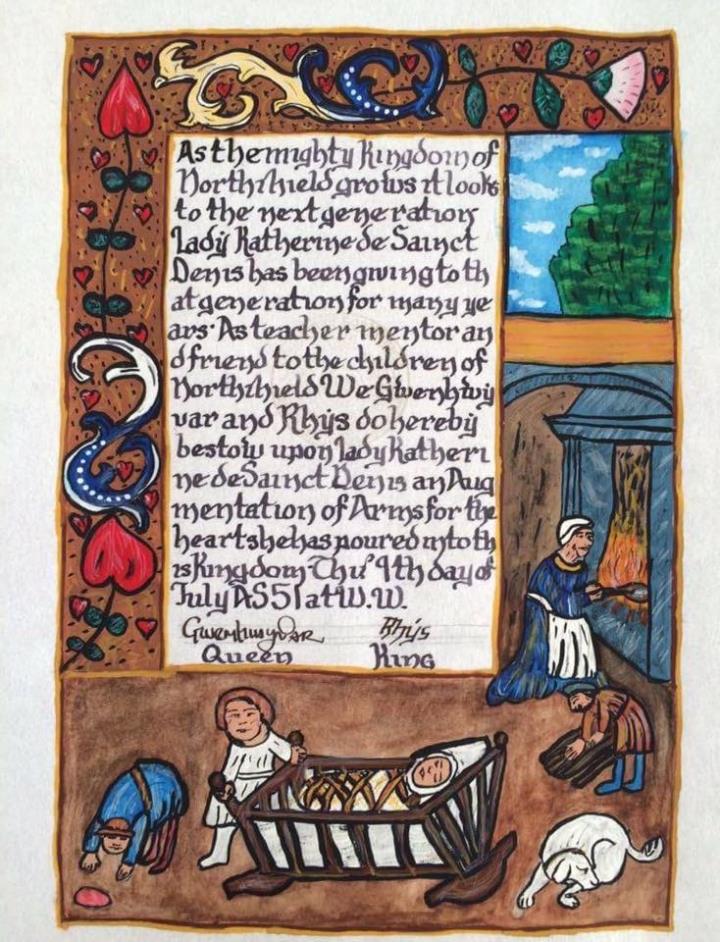 As the mighty Kingdom of
Northshield grows it looks
to the next generation
Lady Katherine de Sainct
Denis has been giving to th
at generation for many ye
ars. As teacher mentor an
d friend to the children of
Northshield We Gwenhwy
var and Rhys do hereby
bestow upon lady Katheri
ne de Sainct Denis an Aug
mentation of Arms for the
heart she has poured into th
is Kingdom This 9th day of
July AS 51 at W.W.
Gwenhwyvar Rhys
Queen King